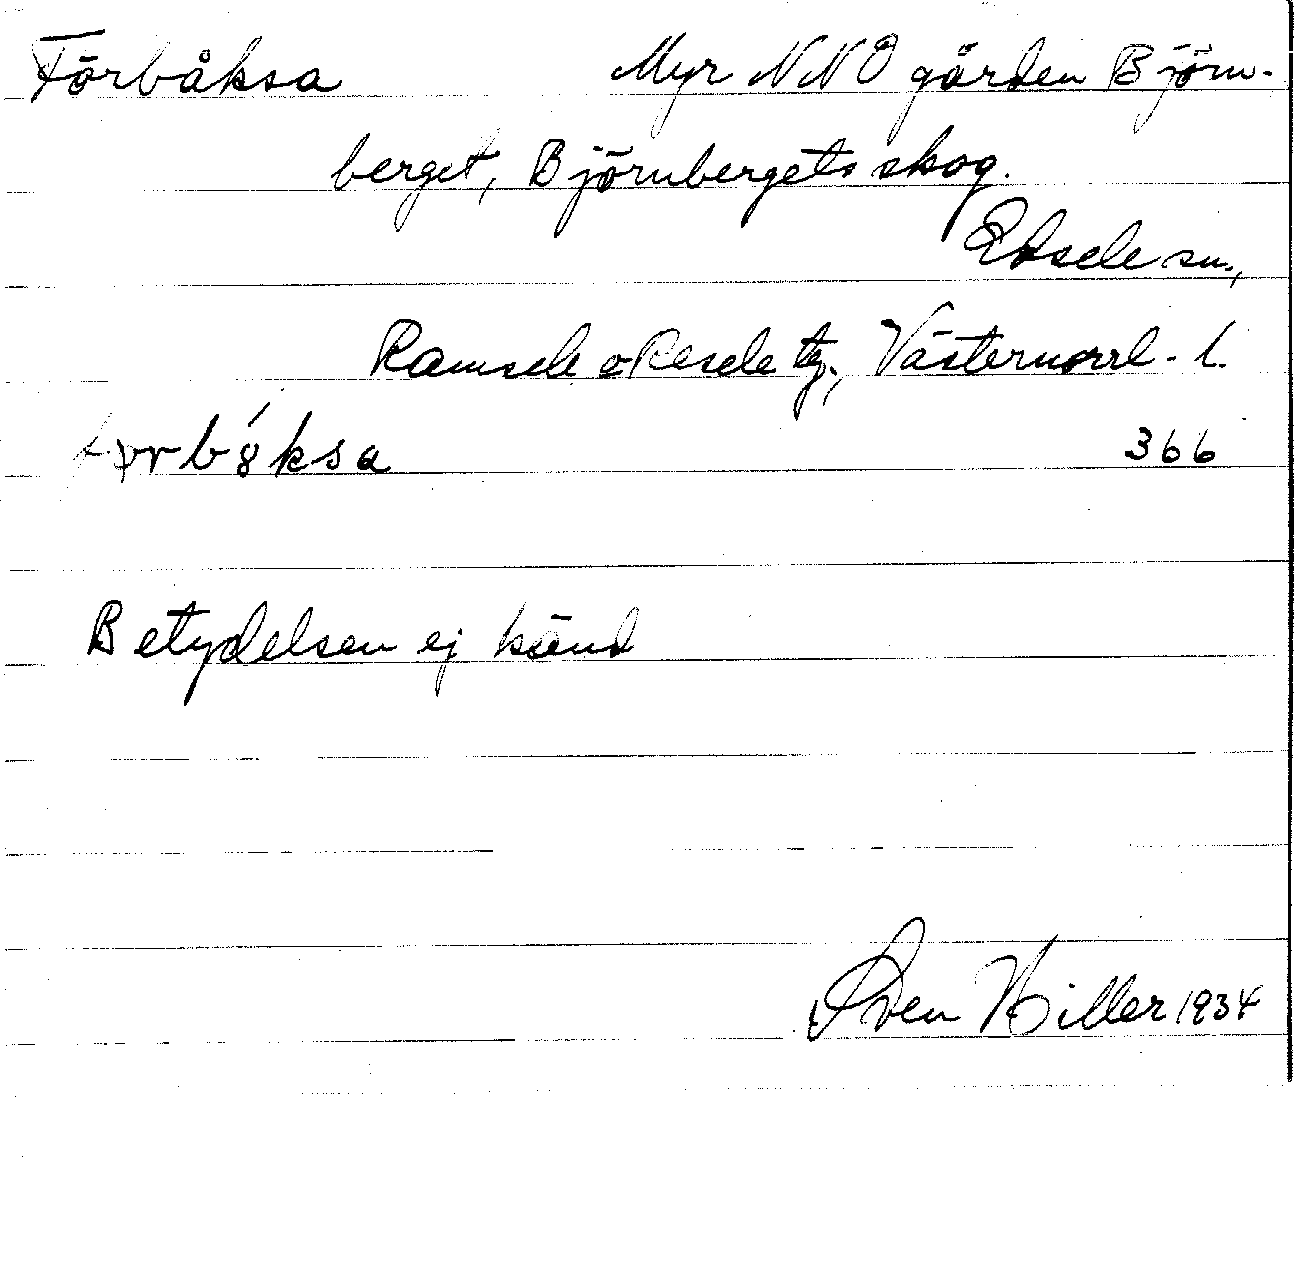 Förbåksa Myr NNO gården Björn-
berget, Björnbergets skog.
Edsele sn.,
Ramsele o Resele tg., Västernorrl. l.
366
Betydelsen ej känd
Sven Hiller 1934